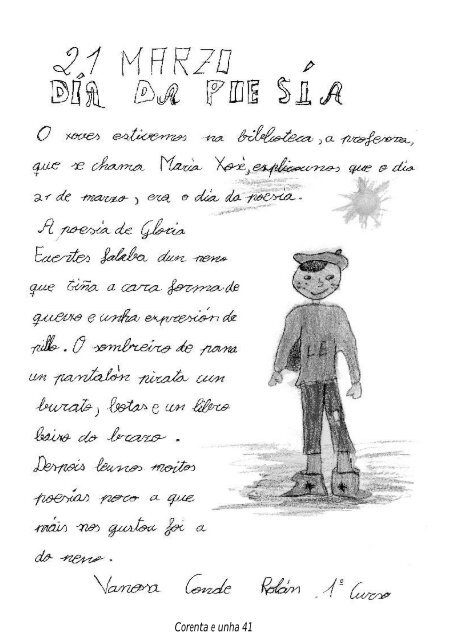 21 MARZO
DÍA DA POESÍA
O xoves estivemos na biblioteca, a profesora,
que se chama María Xosé, explicounos que o día
21 de marzo, era o día da poesía.
A poesía de Gloria
Fuertes falaba dun neno
que tiña a cara forma de
queixo e unha expresión de
pillo. O sombreiro de pana
un pantalón pirata cun
burato, botas e un libro
baixo do brazo.
Despois leunos moitos
poesías pero a que
máis nos gustou foi a
do neno.
LE
Vanesa Conde Rolán 1º Curso
Corenta e unha 41